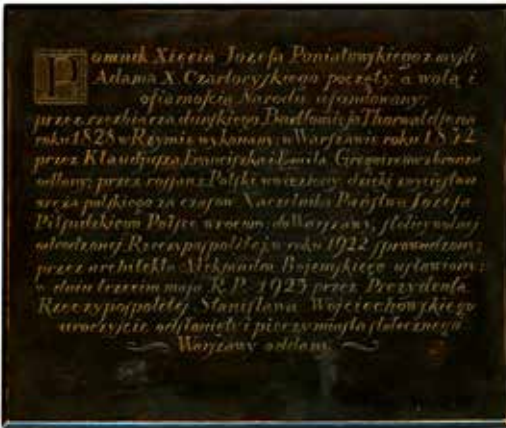 Pomnik Xięcia Jozefa Poniatowskiego z myśli
Adama X. Czartoryskiego poczęty, a wolą i
ofiarnością Narodu ufundowany;
przez rzeźbiarza duńskiego Bartłomieja Thorwaldsena
roku 1828 w Rzymie wykonany; w Warszawie roku 1832
przez Klaudjusza Franciszka i Emila Gregoirów z bronzu
odlany; przez rosjan z Polski wywieziony; dzięki zwycięstwu
oręża polskiego za czasów Naczelnika Państwa Józefa
Piłsudskiego Polsce wrócon; do Warszawy, stolicy wolnej
odrodzonej Rzeczypospolitej w roku 1922 sprowadzony;
przez architekta Aleksandra Bojemskiego ustawiony;
w dniu trzecim maja R.P. 1923 przez Prezydenta
Rzeczypospolitej Stanisława Wojciechowskiego
uroczyście odsłonięty i pieczy miasta stołecznego
Warszawy oddany.